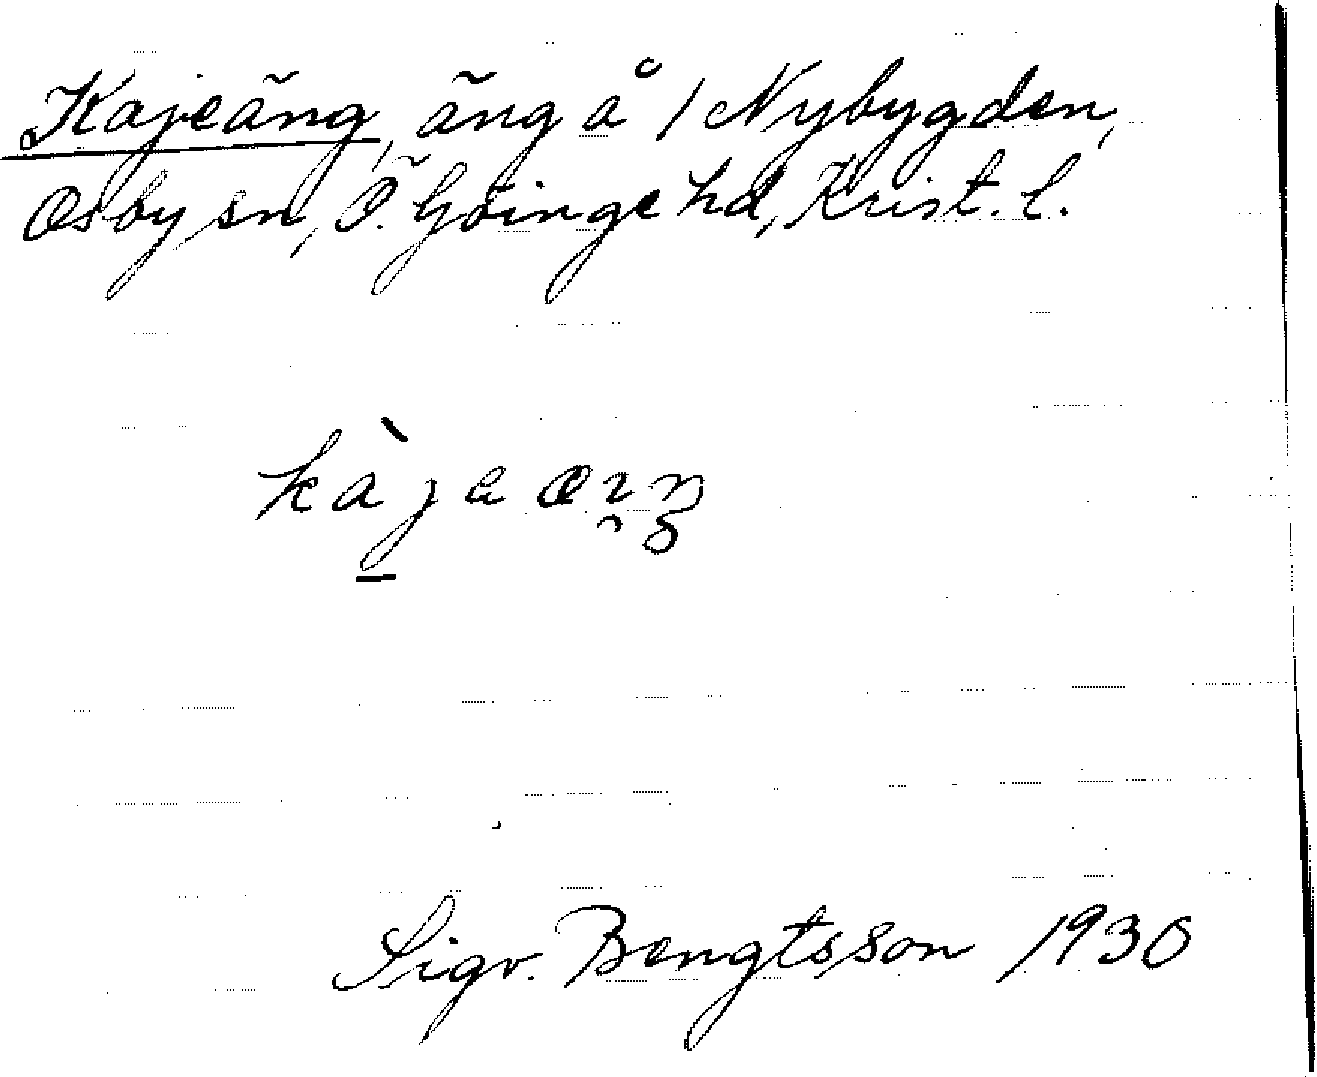 Kajeäng, äng å 1 Nybygden,
Osby sn, Ö. Göinge hd, Krist. l.
Sigv. Bengtsson 1930